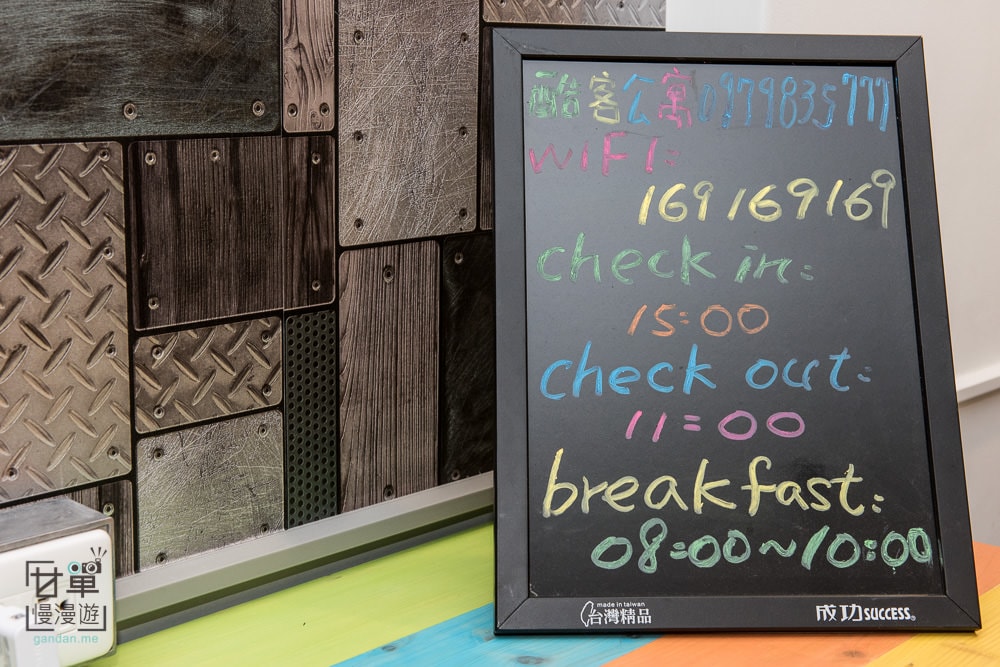 酷客公寓0979835777
WiFI:
169169169
check in:
15:00
check out:
11:00
breakfast:
08:00~10:00
made in taiwan
台灣精品
成功SUCCESS®
甘單
慢漫遊
gandan.me